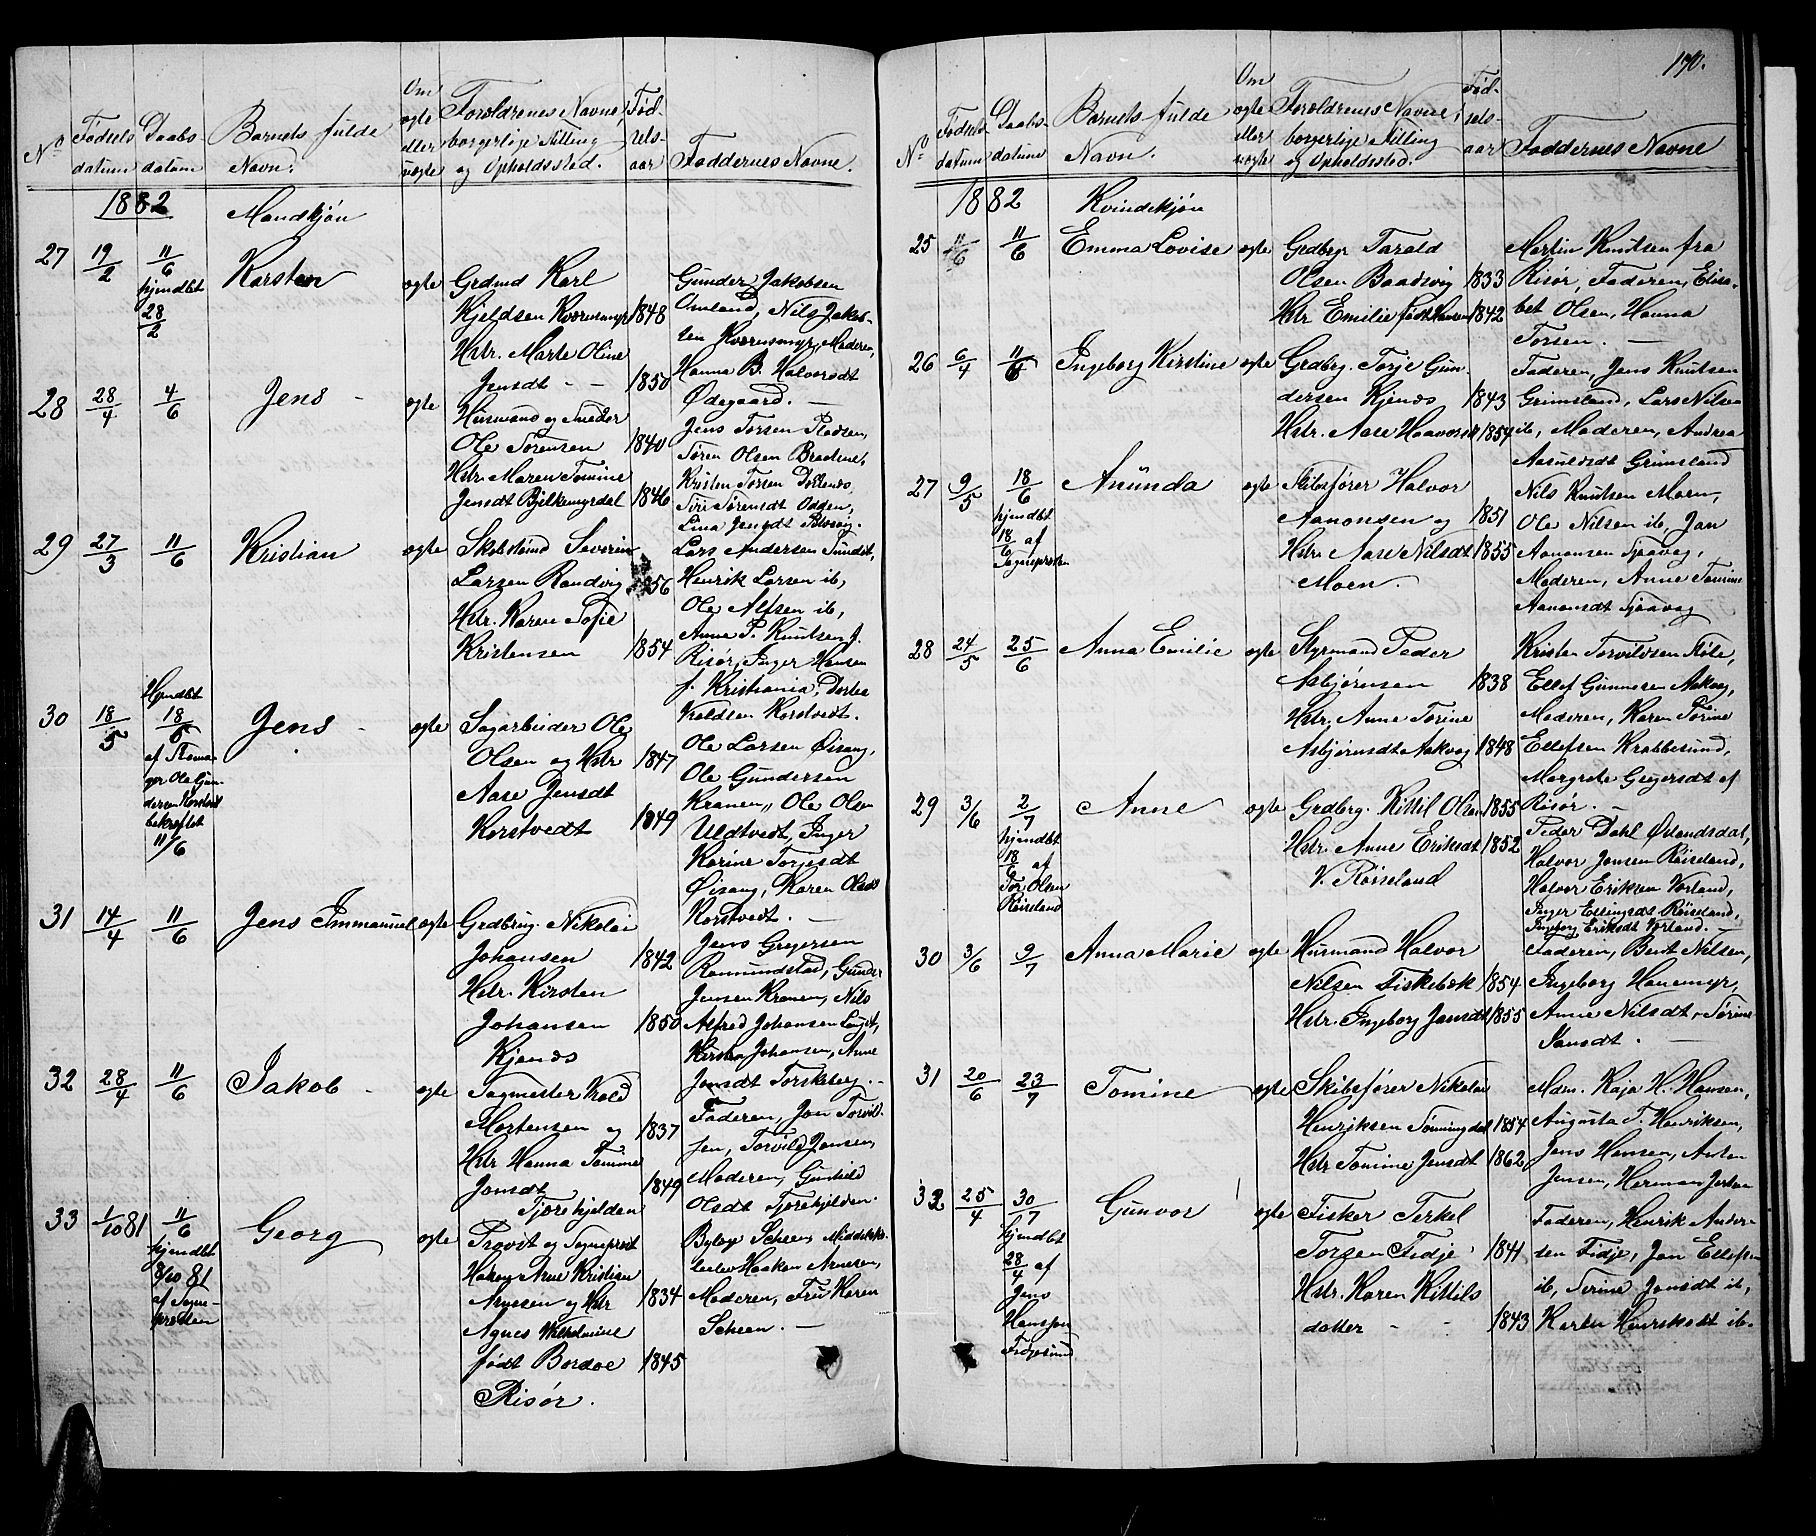 No
Fødsels datum
Daabs datum
Barnets fulde Navn.
Om ægte eller uægte
Forældrenes Navne, borgerlige Stilling og Opholdssted.
Fødselsaar
Faddernes Navne.
1882
Mandkjøn
27
19/2
11/6
hjmdbt
28/2
Karsten
ægte
Grdmd Karl
Kjeldsen Kværnsmyr
1848
Hstr. Marte Oline
Jensdt
1850
Gunder Jakobsen
Omland, Nils Jakob-
sen Kværnsmyr, Moderen,
Hanna B. Halvorsdt
Ødegaard. —
28
28/4
4/6
Jens
ægte
Husmand og Smeder
Ole Sørensen
1840
Hstr. Maren Tomine
Jensdt Bjelkemyrdal
1846
Jens Torsen Pladsen,
Søren Olsen
Kristen Torsen
Siri Sørensdt Odden,
Lina Jensdt
29
27/3
11/6
Kristian
ægte
Severin
Larsen Randvig
1856
Hstr. Karen Sofie
Kristensen
1854
Lars Andersen Sundt,
Henrik Larsen ib,
Ole Alfsen ib,
Anne P. Knutsen f.
Risør, Inger Hansen
f. Kristiania, Dorte
Kroldsen Korstvedt.
30
18/5
Hjmdbt
18/5
af
Ole Gun-
dersen Korstvedt
bekræftet
11/6
Jens
ægte
Sagarbeider Ole
Olsen og Hstr
1847
Aase Jensdt
Korstvedt
1849
Ole Larsen Øisang,
Ole Gundersen
Kranen, Ole Olsen
Uldtvedt, Inger
Karine Torjesdt
Øisang, Karen Olsdt
Korstvedt. —
31
14/4
11/6
Jens Immanuel
ægte
Grdbrug. Nikolai
Johansen
1842
Hstr. Kirsten
Johansen
1850
Kjenes
Jens Gregersen
Romundstad, Gunder
Jensen Kranen, Nils
Alfred Johansen
Kirsten Johansen, Anne
Jensdt Torskeberg. —
32
28/4
11/6
Jakob
ægte
Sagmester Krold
Mortensen og
1837
Hstr Hanna Tomine
Jonsdt
1849
Tjorehjelden
Faderen, Jon Torvild-
sen, Torvild Jensen,
Moderen, Gunhild
Olsdt Tjorehjelden.
33
1/10 81
11/6
hjmdbt
8/10 81
af Sogne-
presten
Georg
ægte
Provst og Sogneprest
Hakon Arne Kristian
Arnesen og Hstr
1834
Agnes Wilhelmine
født Bordoe
1845
Risør.
Byfogd Scheen, Middelsko-
lelev Haaken Arnesen,
Moderen, Fru Karen
Scheen. —
170.
No
Fødsels datum
Daabs datum
Barnets fulde Navn.
Om ægte eller uægte
Forældrenes Navne, borgerlige Stilling og Opholdssted.
Fødselsaar
Faddernes Navne
1882
Kvindekjøn
25
11/6
Emma Lovise
ægte
Grdbrgr Tarald
Olsen Baadsvig
1833
Hstr Emilie født Hansen
1842
Martin Knutsen fra
Risør, Faderen, Elisa-
bet Olsen, Hanna
Torsen. —
26
6/4
11/6
Ingeborg Kirstine
ægte
Grdbrg. Torje Gun-
dersen Kjenes
1843
Hstr. Aase Haavorsdt
1854
Faderen, Jens Knutsen
Grimsland, Lars Nilsen
ib, Moderen, Andrea
Aanulsdt Grimsland
27
9/5
18/6
hjemdbt
18/6 af
Sognepresten
Anunda
ægte
Skibsfører Halvor
Aanonsen og
1851
Hstr Aase Nilsdt
1855
Moen
Nils Knutsen Moen,
Ole Nilsen ib, Jan
Aanonsen Sjaavag,
Moderen, Anne Tomine
Aanonsdt Sjaavag
28
24/5
25/6
Anna Emilie
ægte
Styrmand Peder
Asbjørnsen
1838
Hstr. Anne Torine
Asbjørnsdt Aakvag
1848
Kristen Torvildsen
Ellef Gunnesen Aakvag,
Moderen, Karen Torine
Ellefsen Krabbesund,
Margrete Gregersdt af
Risør. —
29
3/6
2/7
hjemdbt
18/6 af
Tor Olsen
Røiseland
Anne
ægte
Grdbrg. Kittil Olsen
1855
Hstr. Anne Eriksdt
1852
V. Røiseland
Peder Dahl Ørlandsdal,
Halvor Jensen Røiseland,
Halvor Eriksen Vorland,
Inger Ellingsdt Røiseland,
Ingeborg Eriksdt Vorland. —
30
3/6
9/7
Anna Marie
ægte
Husmand Halvor
Nilsen Fiskebæk
1854
Hstr. Ingeborg Jansdt
1855
Faderen, Bent Nilsen,
Ingeborg Hanemyr,
Anne Nilsdt, Tørine
Jansdt. —
31
20/6
23/7
Tomine
ægte
Skibsfører Nikolai
Henriksen Sønningdal
1854
Hstr Tomine Jensdt
1862
Mdm. Kaja H. Hansen,
Augusta T. Henriksen,
Jens Hansen, Anton
Jensen, Herman
32
25/4
30/7
Hjemdbt
28/4 af
Jens
Hansen
Frøjesund
Gunvor
ægte
Fisker Terkel
Torsen Fidje
1841
Hstr. Karen Kittils
datter
1843
Faderen, Henrik Ander-
sen Fidje, Jon Ellefsen
ib, Terine Jonsdt ib,
Karen Henriksdt ib.